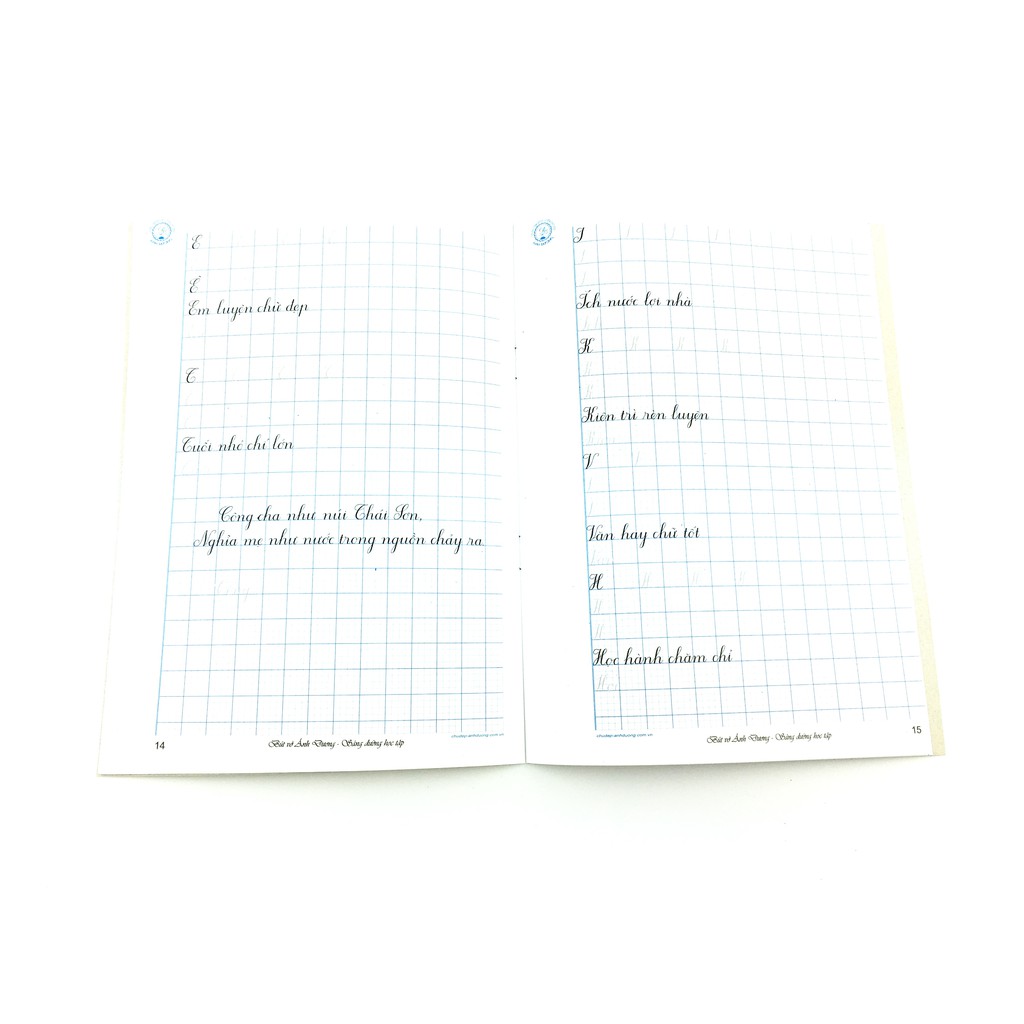 E
Ê
Em luyện chữ đẹp
T
Tuổi nhỏ chí lớn
Công cha như núi Thái Sơn,
Nghĩa mẹ như nước trong nguồn chảy ra
14
Bút vở Ánh Dương - Sáng đường học tập
chudepanhduong.com.vn
I
Ích nước lợi nhà
K
Kiên trì rèn luyện
V
Văn hay chữ tốt
H
Học hành chăm chỉ
chudepanhduong.com.vn
Bút vở Ánh Dương - Sáng đường học tập
15